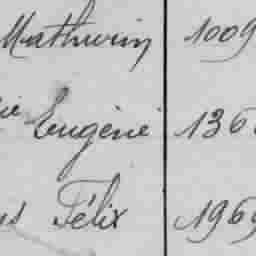 Mathurin 1009
ie Eugénie 136
s Félix 1969